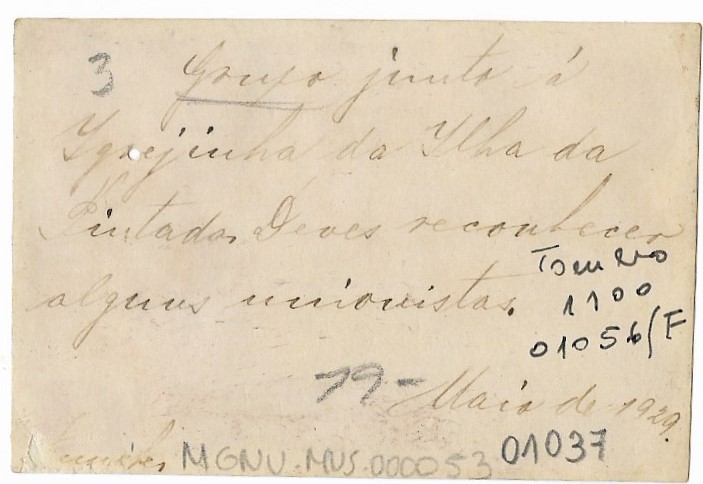 3 Grupo junto á
Igrejinha da Ilha da
Pintada, Deves reconhecer
alguns unionistas.
Tombo
1100
01056/F
79-
Maio de 1929.
MGNU.MUS.000053 01037